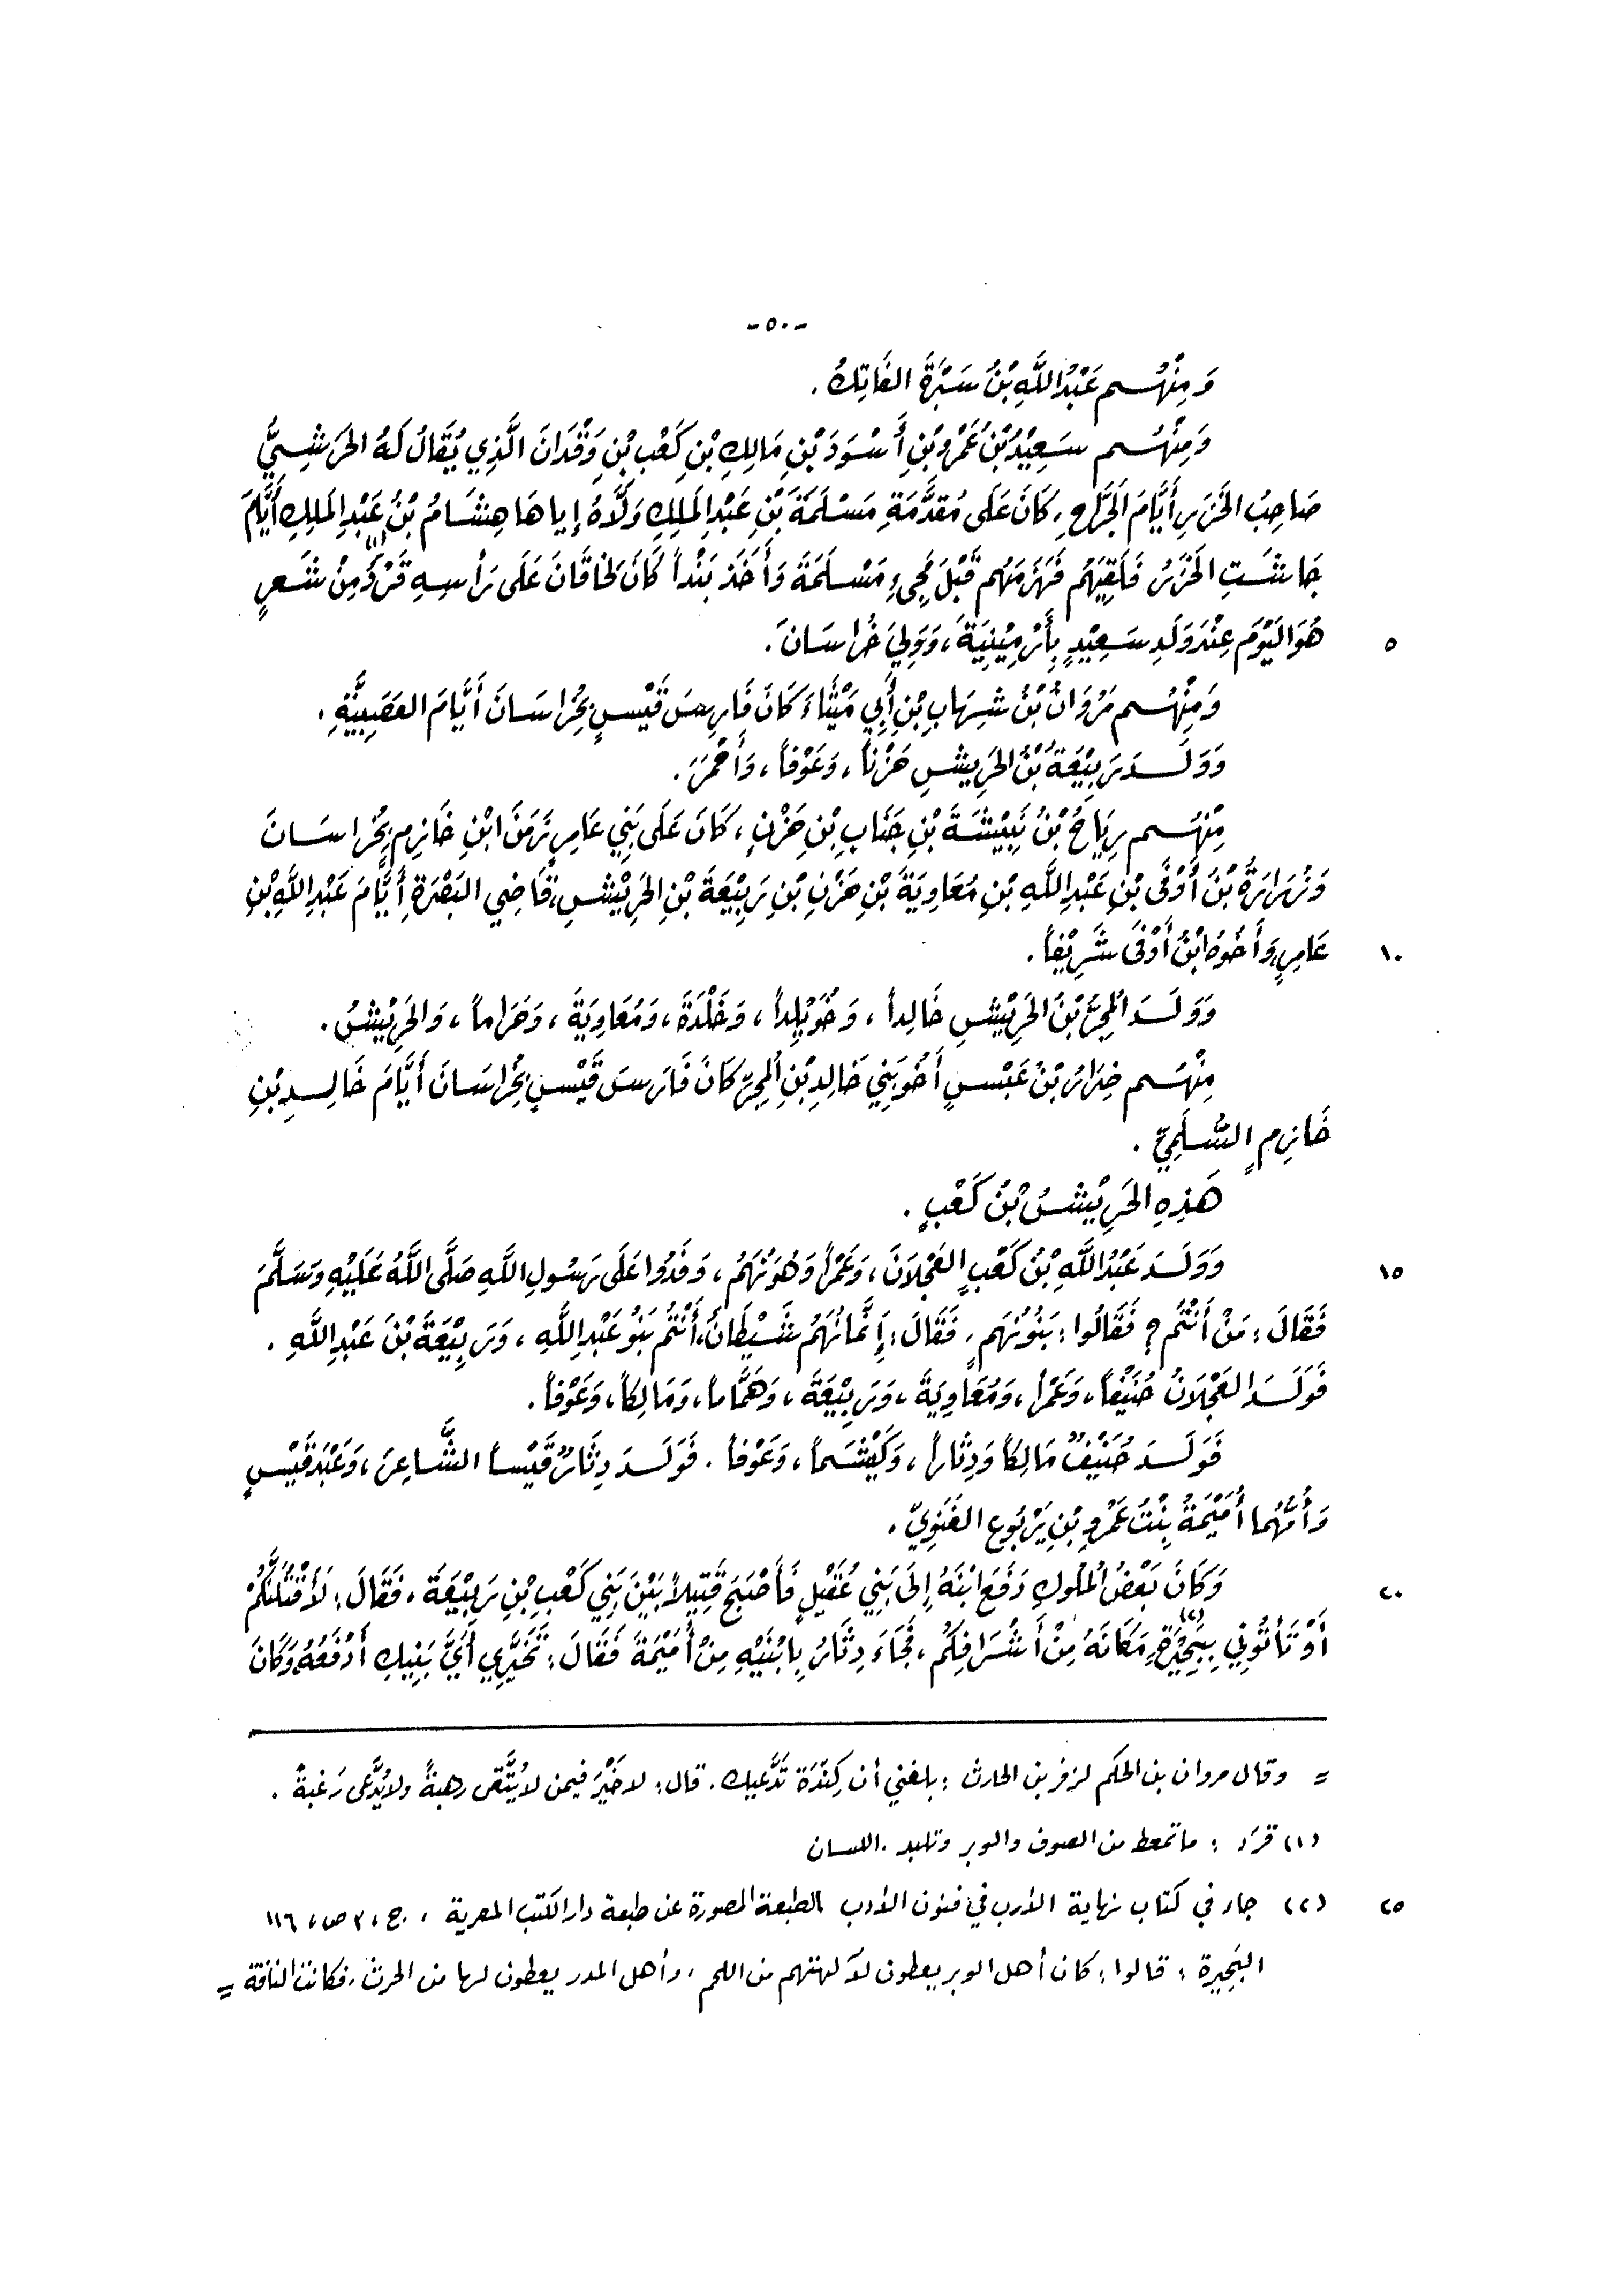 -٥٠-
وَمِنْهُم عَبْدُ اللَّهِ بْنُ سَبْرَةَ الفَاتِكُ.
وَمِنْهُم سَعِيْدُ بْنُ عَمْرِو بْنِ أَسْوَدَ بْنِ مَالِكِ بْنِ كَعْبِ بْنِ وَقْدَانَ الَّذِي يُقَالُ لَهُ الحَرَشِيُّ
صَاحِبُ الخَزَرِ أَيَّامَ الجَرَّاحِ، كَانَ عَلَى مُقدَّمَةِ مَسْلَمَةَ بْنِ عَبْدِ المَلِكِ وَلَّاهُ إياهَا هِشَامُ بْنُ عَبْدِ المَلِكِ أَيَّامَ
جَاشَتِ الخَزَرُ فَلَقِيَهُم فَهَزَمَهُم قَبْلَ مَجِيءِ مَسْلَمَةَ وَأَخَذَ بَنْداً كَانَ لِخَاقَانَ عَلَى رَأْسِهِ قَرَدٌ(١) مِنْ شَعرٍ
٥ هُوَ اليَوْمَ عِنْدَ وَلَدِ سَعِيْدٍ بِأَرْمِيْنِيَةَ، وَوَلِيَ خُرَاسَانَ.
وَمِنْهُم مَرْوَانُ بْنُ شِهَابِ بْنِ أَبِي مَيْثَاءَ كَانَ فَارِسَ قَيْسٍ بِخُرَاسَانَ أَيَّامَ العَصَبِيَّةِ.
وَوَلَدَ رَبِيْعَةُ بْنُ الحَرِيشِ حَزْناً، وَعَوْفاً، وَأَحْمَرَ.
مِنْهُم رِيَاحُ بْنُ نُبَيْشَةَ بْنِ جَنَابِ بْنِ حَزْنٍ، كَانَ عَلَى بَنِي عَامِرٍ زَمَنَ ابْنِ خَازِمٍ بِخُرَاسَانَ
وَزُرَارَةُ بْنُ أَوْفَى بْنِ عَبْدِ اللَّهِ بْنِ مُعَاوِيَةَ بْنِ حَزْنِ بْنِ رَبِيْعَةَ بْنِ الحَرِيْشِ، قَاضِي البَصْرَةِ أَيَّامَ عَبْدِ اللَّهِ بْنِ
١٠ عَامِرٍ، وَأَخُوهُ ابْنُ أَوْفَى شَرِيْفاً.
وَوَلَدَ المِجَرُّ بْنُ الحَرِيْشِ خَالِداً، وَخُوَيْلِداً، وَخَلْدَةَ، وَمُعَاوِيَةَ، وَحَرَاماً، وَالحَرِيْشَ.
مِنْهُم ضِرَارُ بْنُ عَبْسٍ أَخُو بَنِي خَالِدِ بْنِ المِجَرِّ كَانَ فَارِسَ قَيْسٍ بِخُرَاسَانَ أَيَّامَ خَالِدِ بْنِ
خَازِمٍ السُّلَمِيِّ.
هَذِهِ الحَرِيْشُ بْنُ كَعْبٍ.
١٥ وَوَلَدَ عَبْدُ اللَّهِ بْنُ كَعْبٍ العَجْلَانَ، وَعَمْراً وَهُوَ نُهَم، وَفَدُوا عَلَى رَسُولِ اللَّهِ صَلَّى اللَّهُ عَلَيْهِ وَسَلَّمَ
فَقَالَ: مَنْ أَنْتُم؟ فَقَالُوا: بَنُو نُهَمٍ، فَقَالَ: إِنَّمَا نُهَمُ شَيْطَانٌ، أَنْتُم بَنُو عَبْدِ اللَّهِ، وَرَبِيْعَةَ بْنَ عَبْدِ اللَّهِ.
فَوَلَدَ العَجْلَانُ حُنَيْفاً، وَعَمْراً، وَمُعَاوِيَةَ، وَرَبِيْعَةَ، وَهَمَّاماً، وَمَالِكاً، وَعَوْفاً.
فَوَلَدَ حُنَيْفٌ مَالِكاً وَدِثَاراً، وَكَيْشَماً، وَعَوْفاً. فَوَلَدَ دِثَارٌ قَيْساً الشَّاعِرَ، وَعَبْدَ قَيْسٍ
وَأُمُّهُما أُمَيْمَةُ بِنْتُ عَمْرِو بْنِ يَرْبُوعٍ الغَنَوِيِّ.
٢٠ وَكَانَ بَعْضُ المُلُوكِ دَفَعَ ابْنَهُ إِلَى بَنِي عُقَيْلٍ فَأَصْبَحَ قَتِيلاً بَيْنَ بَنِي كَعْبِ بْنِ رَبِيْعَةَ، فَقَالَ: لَأَقْتُلَنَّكُمْ
أَوْ تَأتُونِي بِبَحِيْرَةٍ(٢) مَكَانَهُ مِنْ أَشْرَافِكُم، فَجَاءَ دِثَارُ بِابْنَيْهِ مِنْ أُمَيْمَةَ فَقَالَ: تَخَيَّرِي أَيَّ بَنِيكِ أَدْفَعُهُ، وَكَانَ
= وقال مروان بن الحكم لزفر بن الحارث: بلغني أن كِنْدَة تَدَّعيك. قال: لا خَيْرَ فيمن لا يُتَّقى رهبةً ولا يُدَّعى رَغبةً.
(١) قرَد: ما تمعط من الصوف والوبر وتلبد. اللسان
٢٥ (٢) جاء في كتاب نهاية الأرب في فنون الأدب الطبعة المصورة عن طبعة دار الكتب المصرية، ج، ٣ ص، ١١٦
البَحِيرة: قالوا: كان أهل الوبر يعطون لآلهتهم من اللحم، وأهل المدر يعطون لها من الحرث، فكانت الناقة =